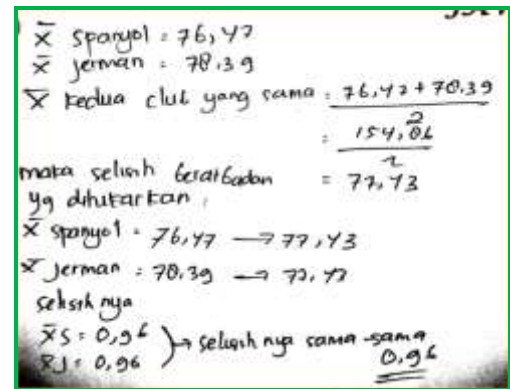 x̄ Spanyol = 76,47
x̄ Jerman = 78,39
x̄ kedua club yang sama = 76,47+78,39
2
= 154,86
2
maka selisih berat badan = 77,43
yg ditukarkan,
x̄ Spanyol = 76,47 → 77,43
x̄ Jerman = 78,39 → 77,43
selisih nya
x̄S = 0,96
x̄J = 0,96 } → selisih nya sama-sama
0,96